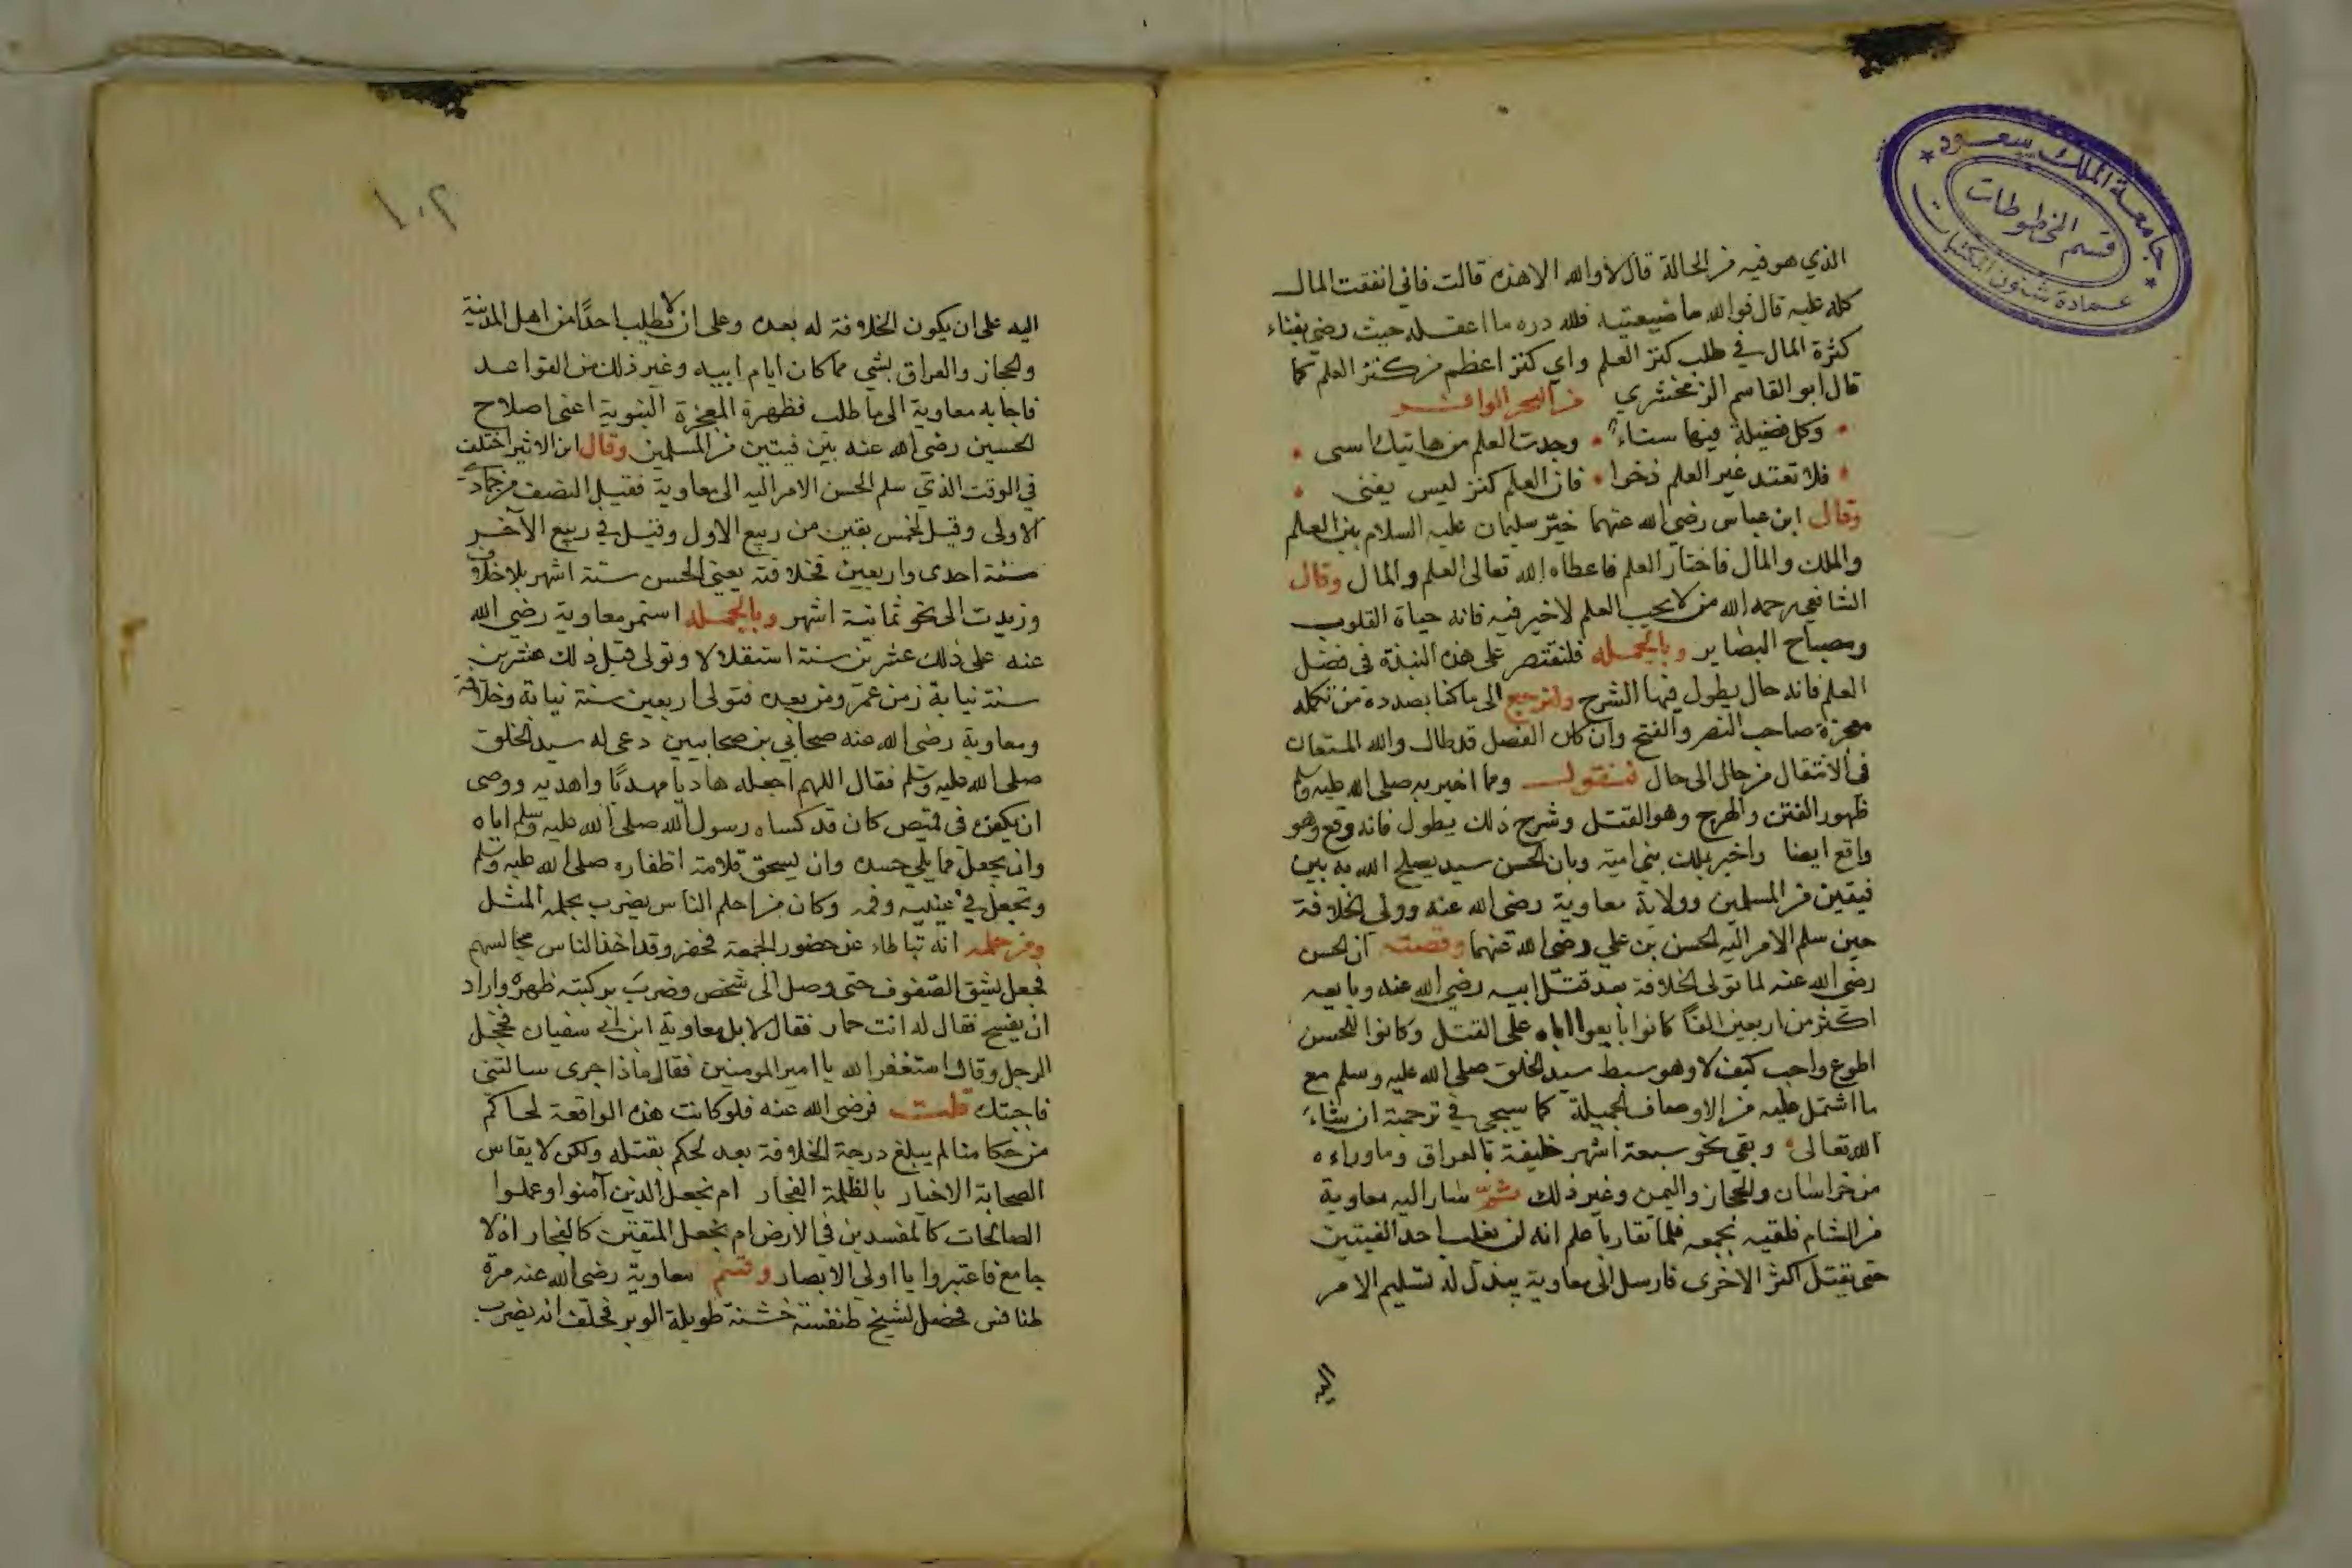 جامعة الملك سعود
قسم المخطوطات
عمادة شئون المكتبات
الذي هو فيه من الحالة قال لا والله الا هذه قالت فاني انفقت المال
كله عليه قال فوالله ما ضيعتيه فلله دره ما اعقله حيث رضي بفناء
كثرة المال في طلب كنز العلم واي كنز اعظم من كنز العلم كما
قال ابو القاسم الزمخشري من البحر الوافر
وكل فضيلة فيها سناء وجدت العلم من هاتيك اسى
فلا تعتد غير العلم ذخرا فان العلم كنز ليس يفنى
وقال ابن عباس رضي الله عنهما خير سليمان عليه السلام بين العلم
والملك والمال فاختار العلم فاعطاه الله تعالى العلم والمال وقال
الشافعي رحمه الله من لا يحب العلم لا خير فيه فانه حياة القلوب
ومصباح البصاير وبالجمله فلنقتصر على هذه النبذة في فضل
العلم فانه حال يطول فيها الشرح ولنرجع الى ما كنا بصدده من تكمله
معجزة صاحب النصر والفتح وان كان الفصل قد طال والله المستعان
في الانتقال من حال الى حال فنقول ومما اخبر به صلى الله عليه وسلم
ظهور الفتن والهرج وهو القتل وشرح ذلك يطول فانه وقع وهو
واقع ايضا واخبر بملك بني امية وبان الحسن سيد يصلح الله به بين
فيتين من المسلمين وولاية معاوية رضي الله عنه وولي الخلافة
حين سلم الامر اليه الحسن بن علي رضي الله عنهما وقصته ان الحسن
رضي الله عنه لما تولى الخلافة بعد قتل ابيه رضي الله عنه وبايعه
اكثر من اربعين الفا كانوا بايعوا اباه على القتل وكانوا للحسن
اطوع واحب كيف لا وهو سبط سيد الخلق صلى الله عليه وسلم مع
ما اشتمل عليه من الاوصاف الجميلة كما سيجي في ترجمته ان شاء
الله تعالى وبقي نحو سبعة اشهر خليفة بالعراق وما وراءه
من خراسان والحجاز واليمن وغير ذلك ثم سار اليه معاوية
من الشام فلقيه بجمعه فلما تقاربا علم انه لن يغلب احد الفيتين
حتى يقتل اكثر الاخرى فارسل الى معاوية يبذل له تسليم الامر
اليه
١٠٢
اليه على ان يكون الخلافة له بعده وعلى ان لا يطلب احدا من اهل المدينة
والحجاز والعراق بشي مما كان ايام ابيه وغير ذلك من القواعد
فاجابه معاوية الى ما طلب فظهرة المعجزة النبوية اعني اصلاح
الحسين رضي الله عنه بين فيتين من المسلمين وقال ابن الاثير اختلف
في الوقت الذي سلم الحسن الامر اليه الى معاوية فقيل النصف من جمادى
الاولى وقيل لخمس بقين من ربيع الاول وقيل في ربيع الآخر
سنة احدى واربعين فخلافته يعني الحسن ستة اشهر بلا خلاف
وزيدت الى نحو ثمانية اشهر وبالجمله استمر معاوية رضي الله
عنه على ذلك عشرين سنة استقلالا وتولى قبل ذلك عشرين
سنة نيابة زمن عمر ومن بعده فتولى اربعين سنة نيابة وخلافة
ومعاوية رضي الله عنه صحابي بن صحابيين دعى له سيد الخلق
صلى الله عليه وسلم فقال اللهم اجعله هاديا مهديا واهد به ووصى
ان يكفن في قميص كان قد كساه رسول الله صلى الله عليه وسلم اياه
وان يجعل مما يلي جسده وان يسحق قلامة اظفاره صلى الله عليه وسلم
وتجعل في عينيه وفمه وكان من احلم الناس يضرب بحلمه المثل
ومن حلمه انه تباطاء عن حضور الجمعة فحضر وقد اخذ الناس مجالسهم
فجعل يشق الصفوف حتى وصل الى شخص وضرب بركبته ظهره واراد
ان يفسح فقال له انت حمار فقال لا بل معاوية ابن ابي سفيان فخجل
الرجل وقال استغفر الله يا امير المومنين فقال ماذا جرى سالتني
فاجبتك قلت فرضي الله عنه فلو كانت هذه الواقعة لحاكم
من حكامنا لم يبلغ درجة الخلافة بعد لحكم بقتله ولكن لا يقاس
الصحابة الاخيار بالظلمة الفجار ام نجعل الذين آمنوا وعملوا
الصالحات كالمفسدين في الارض ام نجعل المتقين كالفجار اذ لا
جامع فاعتبروا يا اولي الابصار وقسم معاوية رضي الله عنه مرة
طنافس فحصل لشيخ طنفسة خشنة طويلة الوبر فحلف انه يضرب